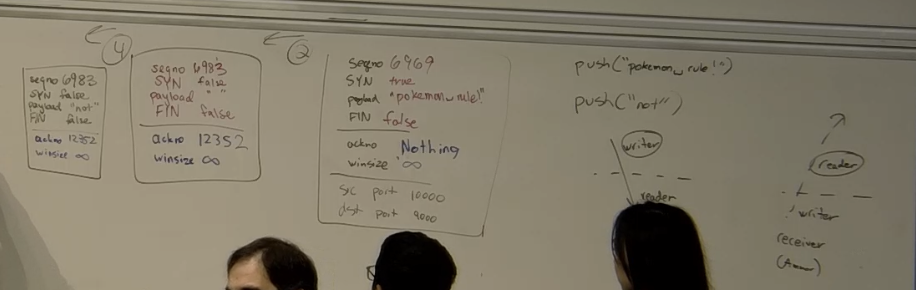 4
2
segno 6983
SYN false
payload "not"
FIN false
ackno 12352
winsize ∞
seqno 6983
SYN false
payload " "
FIN false
ackno 12352
winsize ∞
seqno 6969
SYN true
payload "pokemon␣rule!"
FIN false
ackno Nothing
winsize ∞
src port 10000
dest port 9000
push("pokemon␣rule!")
push("not")
writer
reader
reader
writer
receiver